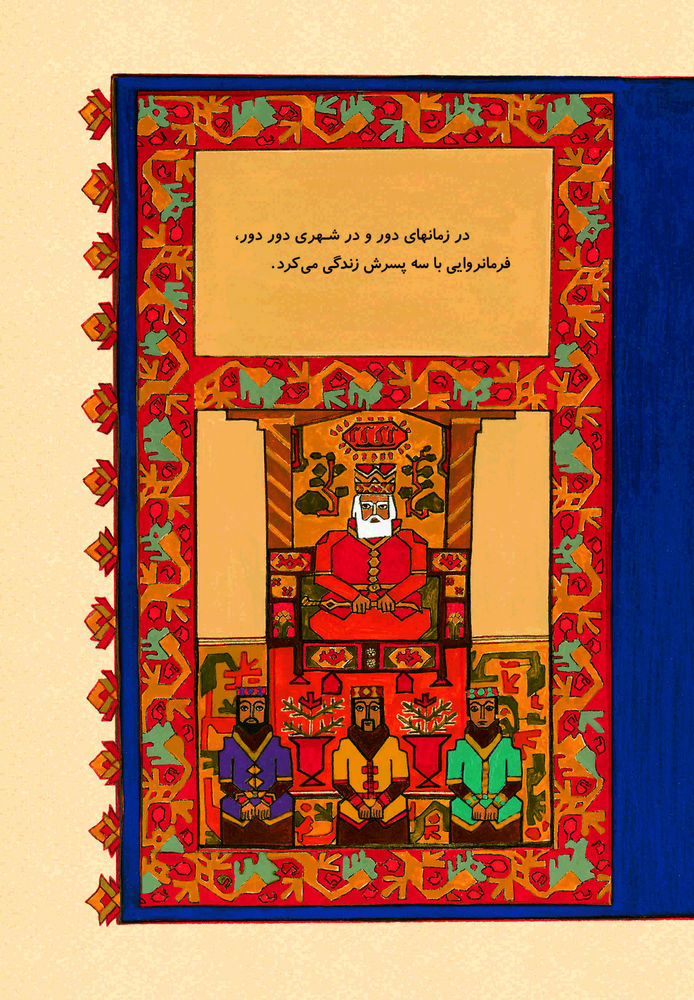 در زمانهای دور و در شهری دور دور،
فرمانروایی با سه پسرش زندگی می‌کرد.